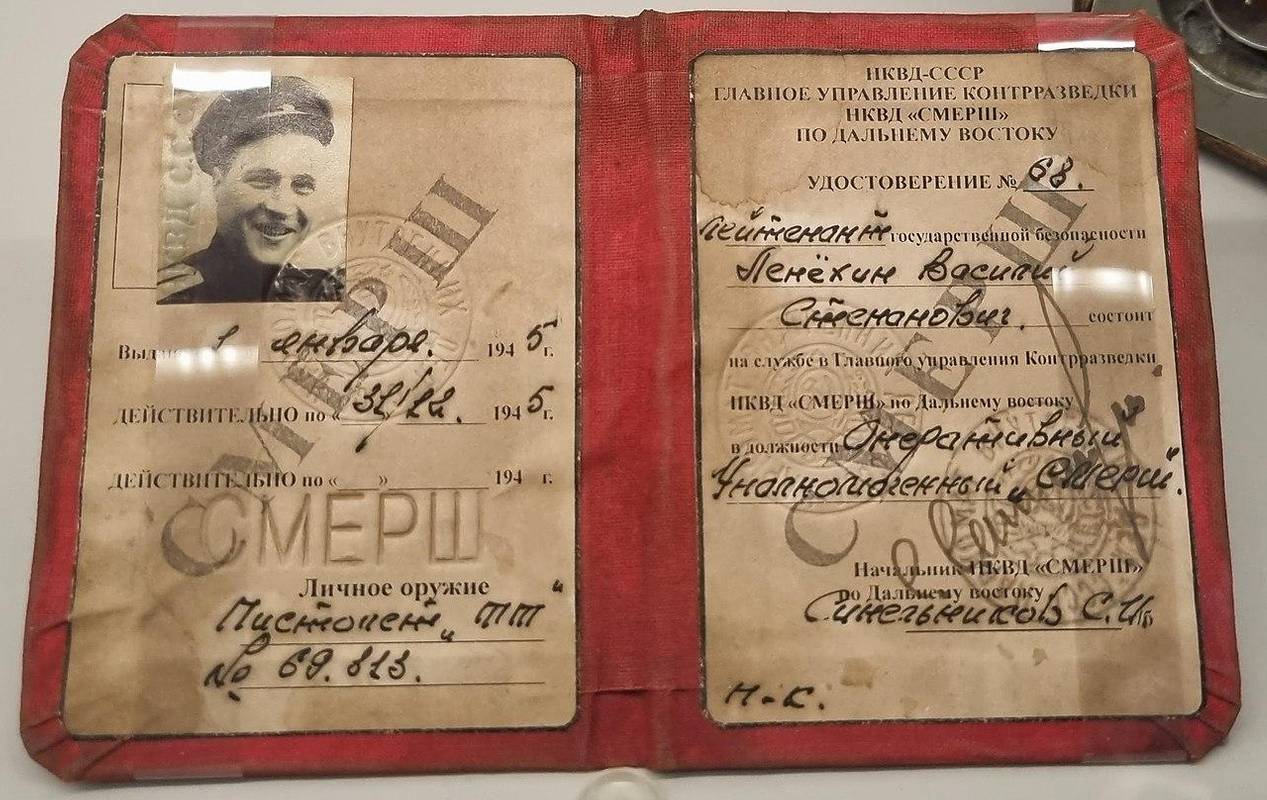 НКВД СССР
СМЕРШ
1 января. 1945 г.
ДЕЙСТВИТЕЛЬНО по « 1945 г.
ДЕЙСТВИТЕЛЬНО по « » 194 г.
СМЕРШ
Личное оружие
Пистолет „ТТ“
№ 69.813.
НКВД-СССР
ГЛАВНОЕ УПРАВЛЕНИЕ КОНТРРАЗВЕДКИ
НКВД «СМЕРШ»
ПО ДАЛЬНЕМУ ВОСТОКУ
УДОСТОВЕРЕНИЕ № 68.
лейтенант государственной безопасности
Пенёхин Василий
Степанович. состоит
на службе в Главного управления Контрразведки
НКВД «СМЕРШ» по Дальнему востоку
в должности Оперативный
Уполномоченный „Смерш“.
СМЕРШ
Начальник НКВД «СМЕРШ»
по Дальнему востоку
Синельников С.И.
Н-К.